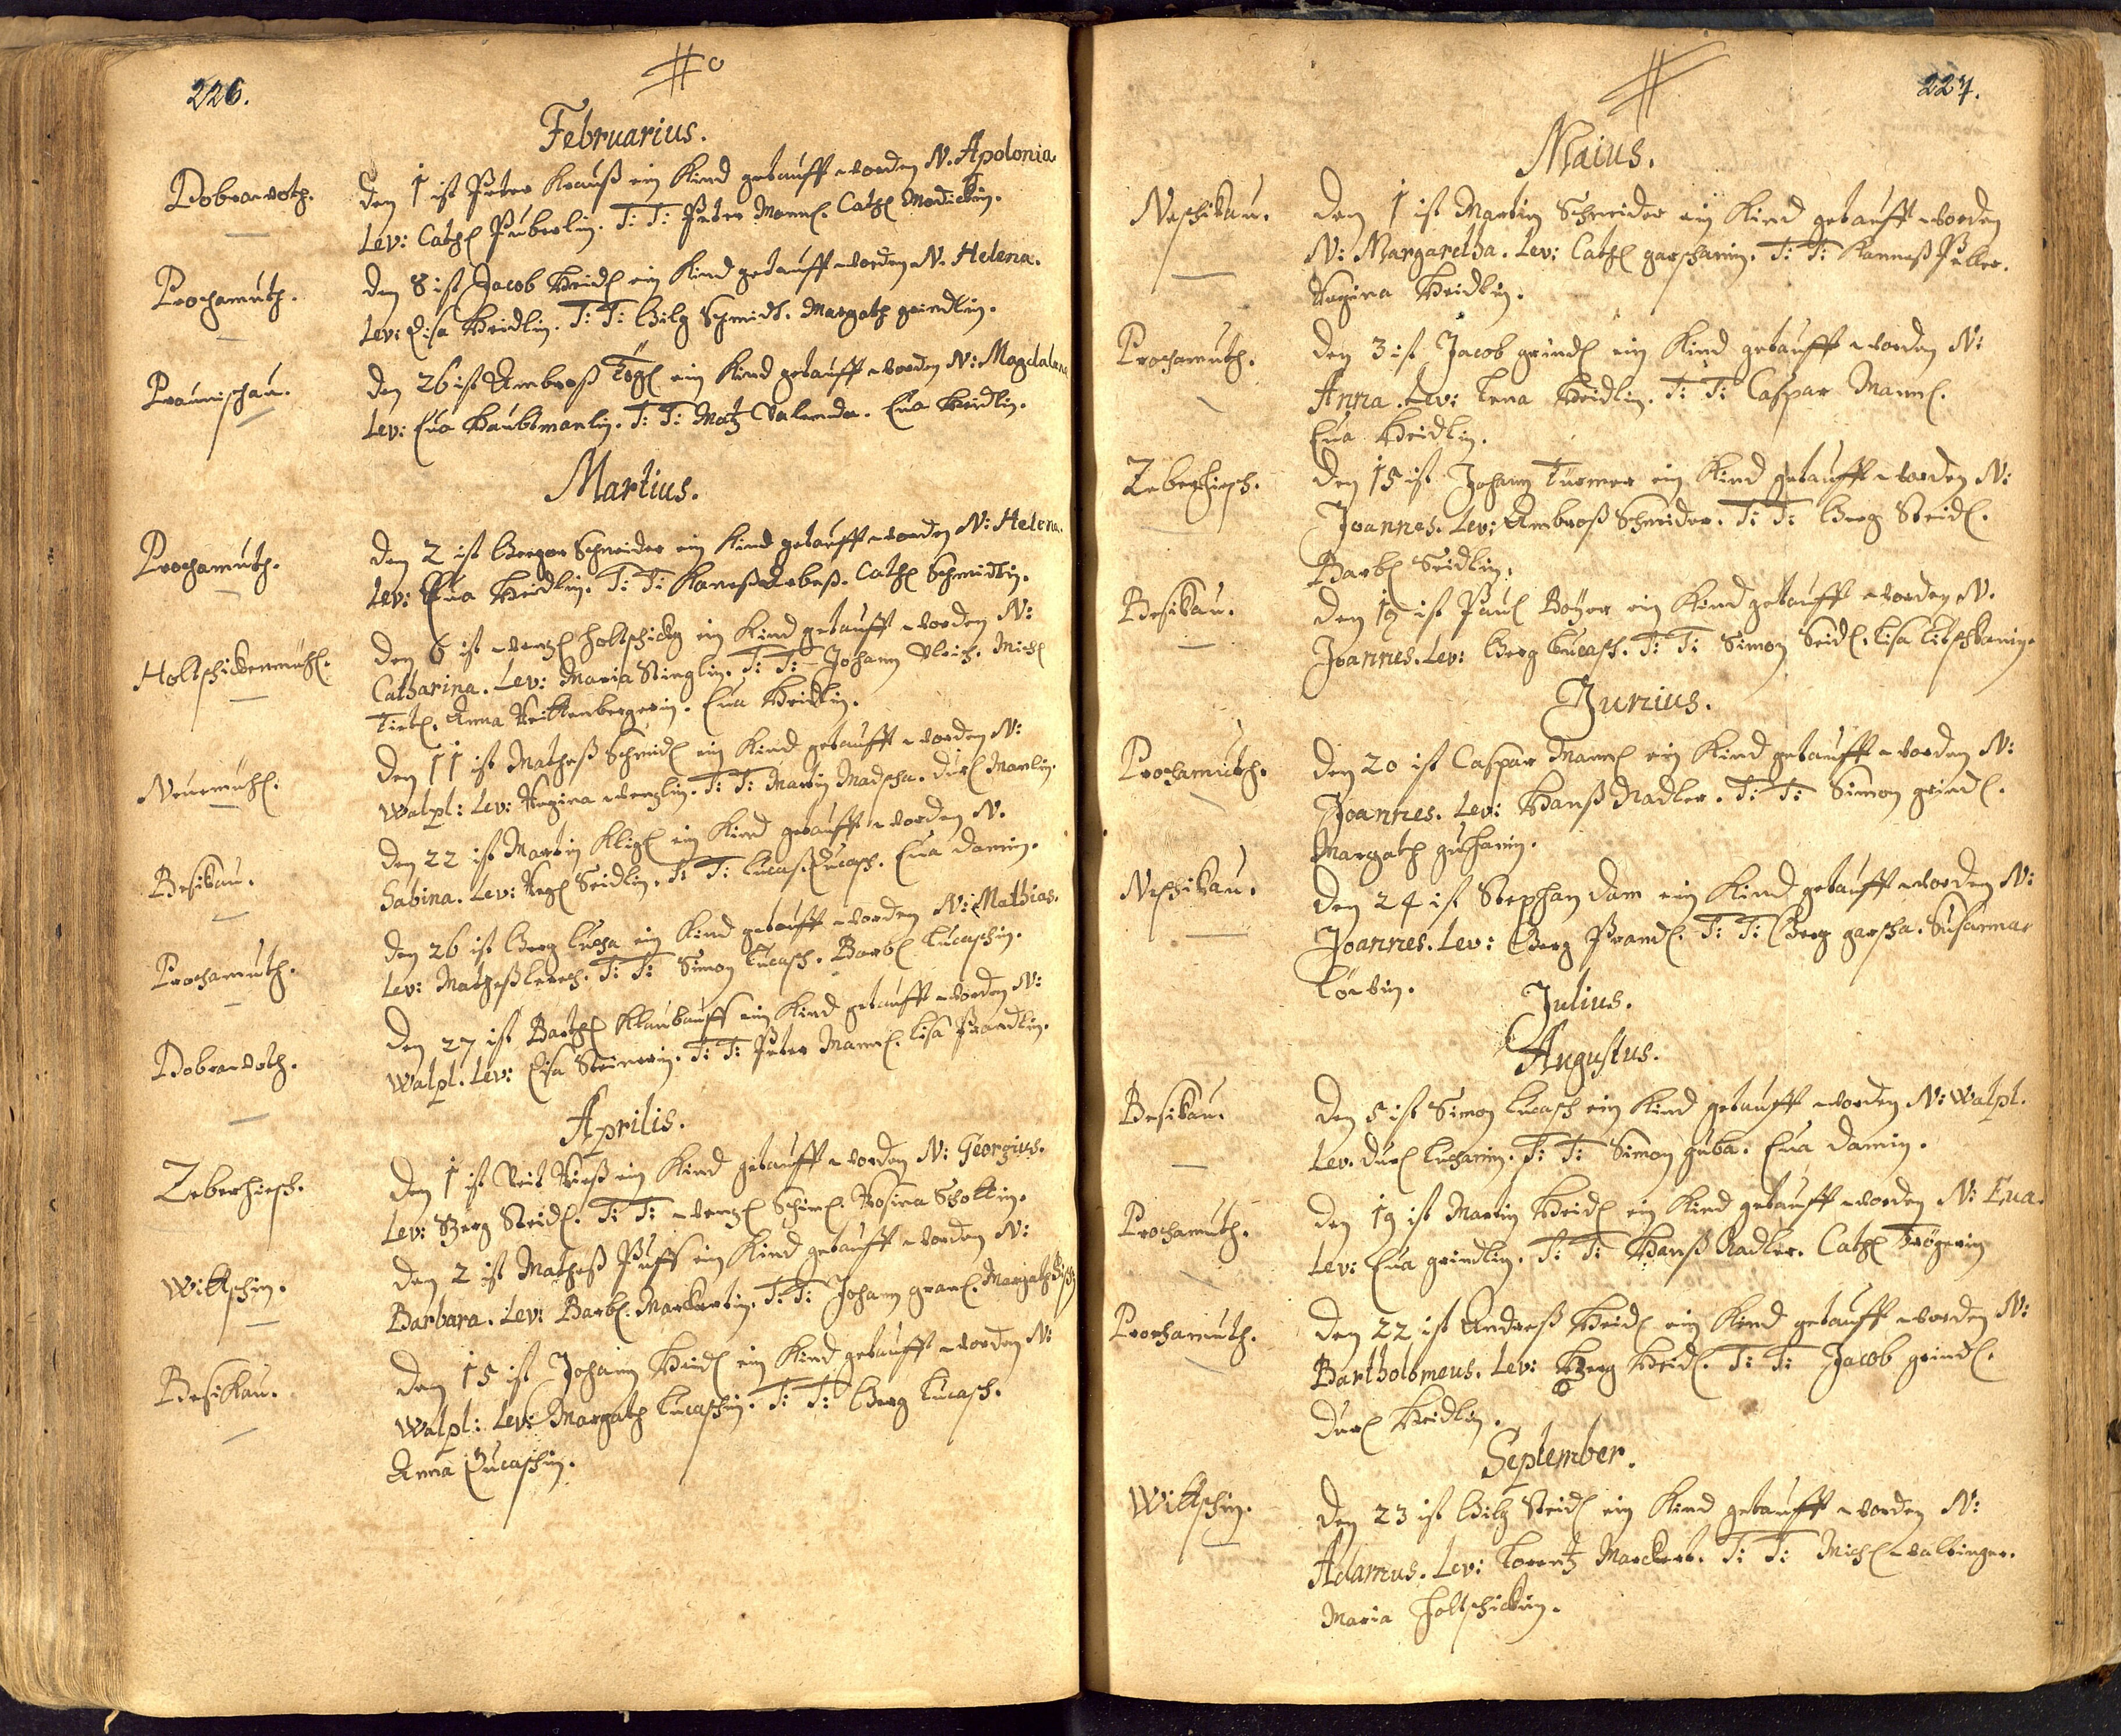 226.
Februarius.
Dobrawoth.
den 1 ist Peter Krauß ein Kind getaufft worden N. Apolonia.
Lev: Cathl Puberlin. T: T: Peter Mannl. Cathl Modickin.
Prochamuth.
den 8 ist Jacob Heidl ein Kind getaufft worden N. Helena.
Lev: Lisa Heidlin. T: T: Gilg Schmidt. Margath grindlin.
Praunischau.
den 26 ist Ambroß Tögl ein Kind getaufft worden N: Magdalena
Lev: Eua Haubtmanlin. T: T: Matz Valenda. Eua Heidlin.
Martius.
Prochamuth.
den 2 ist Gregor Schneider ein Kind getaufft worden N: Helena.
Lev: Eua Heidlin. T: T: Hanß Cathl Schmidlin.
Holtschickenmühl.
den 6 ist wenzl Holtschickh ein Kind getaufft worden N:
Catharina. Lev: Maria Stinglin. T: T: Johann Ulrich. Michl
Tietl. Anna Reittenbergerin. Eua Heidlin.
Neuemühl.
den 11 ist Matheß Schmidl ein Kind getaufft worden N:
Walpl: Lev: Regina wenzlin. T: T: Martin Madscha. Durl Manlin.
Besikau.
den 22 ist Martin Kligl ein Kind getaufft worden N.
Sabina. Lev: Regl Seidlin. T: T: Lucaß Lucasch. Eua Damin.
Prochamuth.
den 26 ist Gerg Lucha ein Kind getaufft worden N: Mathias.
Lev: Matheß Lerch. T: T: Simon Lucasch. Barbl Lucaschin.
Dobrawoth.
den 27 ist Barthl Klaubauff ein Kind getaufft worden N:
Walpl. Lev: Lisa Steinerin. T: T: Peter Mannl. Lisa Prandlin.
Aprilis.
Zeberhiesch.
den 1 ist Veit Rieß ein Kind getaufft worden N: Georgius.
Lev: Gerg Steidl. T: T: wenzl Schiml. Rosina Schottin.
Wittschin.
den 2 ist Matheß Puff ein Kind getaufft worden N:
Barbara. Lev: Barbl. Markertin. T: T: Johann granl. Margath
Besikau.
den 15 ist Johann Heidl ein Kind getaufft worden N:
Walpl: Lev: Margath Lucaschin. T: T: Gerg Lucasch.
Anna Lucaschin.
227.
Maius.
Neschikau.
den 1 ist Martin Schneider ein Kind getaufft worden
N: Margaretha. Lev: Cathl garschanin. T: T: Hanneß Peller.
Regina Heidlin.
Prochamuth.
den 3 ist Jacob grindl ein Kind getaufft worden N:
Anna. Lev: Lena Heidlin. T: T: Caspar Mannl.
Eua Heidlin.
Zeberhisch.
den 15 ist Johann Türmer ein Kind getaufft worden N:
Joannes. Lev: Ambroß Schneider. T: T: Gerg Steidl.
Barbl Seidlin.
Besikau.
den 19 ist Paul Böyer ein Kind getaufft worden N.
Joannes. Lev: Gerg Lucasch. T: T: Simon Seidl. Lisa Litschkanin.
Junius.
Prochamuth.
den 20 ist Caspar Mannl ein Kind getaufft worden N:
Joannes. Lev: Hanß Nadler. T: T: Simon grindl.
Margath
Neschikau.
den 24 ist Stephan Dam ein Kind getaufft worden N:
Joannes. Lev: Gerg Prandl. T: T: Gerg garscha. Susanna
Löwin.
Julius.
Augustus.
Besikau.
den 5 ist Simon Lucasch ein Kind getaufft worden N: Walpl.
Lev. Durl Luchanin. T: T: Simon guba. Eua Damin.
Prochamuth.
den 19 ist Martin Heidl ein Kind getaufft worden N: Eua.
Lev: Eua grindlin. T: T: Hanß Nadler. Cathl Trögerin
Prochamuth.
den 22 ist Andreß Heidl ein Kind getaufft worden N:
Bartholomeus. Lev: Gerg Heidl. T: T: Jacob grindl.
Durl Heidlin.
September.
Wittschin.
den 23 ist Gilg Steidl ein Kind getaufft worden N:
Adamus. Lev: Lorentz Marckert. T: T: Michl waltinger.
Maria Holtschickin.